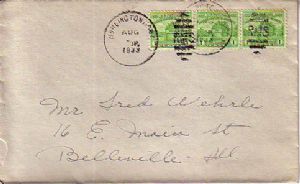 AUG
1933
Mr Fred Wehrle
16 E. Main St
Belleville Ill